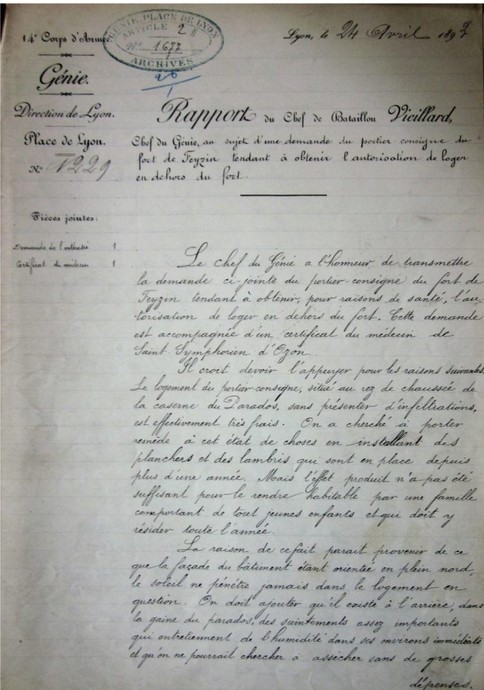 14e Corps d'Armée
GÉNIE PLACE DE LYON
ARTICLE 2
No 1677
ARCHIVES
Lyon, le 24 Avril 189
Génie.
Direction de Lyon.
Place de Lyon.
No 229
Rapport du Chef de Bataillon Vieillard,
Chef du Génie, au sujet d'une demande du portier consigne du
fort de Feyzin tendant à obtenir l'autorisation de loger
en dehors du fort.
Pièces jointes:
Demande de l'intéressé 1
Certificat du médecin 1
Le chef du Génie a l'honneur de transmettre
la demande ci-jointe du portier-consigne du fort de
Feyzin tendant à obtenir, pour raisons de santé, l'au-
torisation de loger en dehors du fort. Cette demande
est accompagnée d'un certificat du médecin de
Saint Symphorien d'Ozon.
Il croit devoir l'appuyer pour les raisons suivantes.
Le logement du portier-consigne, situé au rez de chaussée de
la caserne du Parados, sans présenter d'infiltrations,
est effectivement très frais. On a cherché à porter
remède à cet état de choses en installant des
planchers et des lambris qui sont en place depuis
plus d'une année. Mais l'effet produit n'a pas été
suffisant pour le rendre habitable par une famille
comportant de tout jeunes enfants et qui doit y
résider toute l'année.
La raison de ce fait parait provenir de ce
que la façade du bâtiment étant orientée en plein nord,
le soleil ne pénètre jamais dans le logement en
question. On doit ajouter qu'il existe à l'arrière, dans
la gaine du parados, des suintements assez importants
qui entretiennent de l'humidité dans ses environs immédiats
et qu'on ne pourrait chercher à assécher sans de grosses
dépenses.